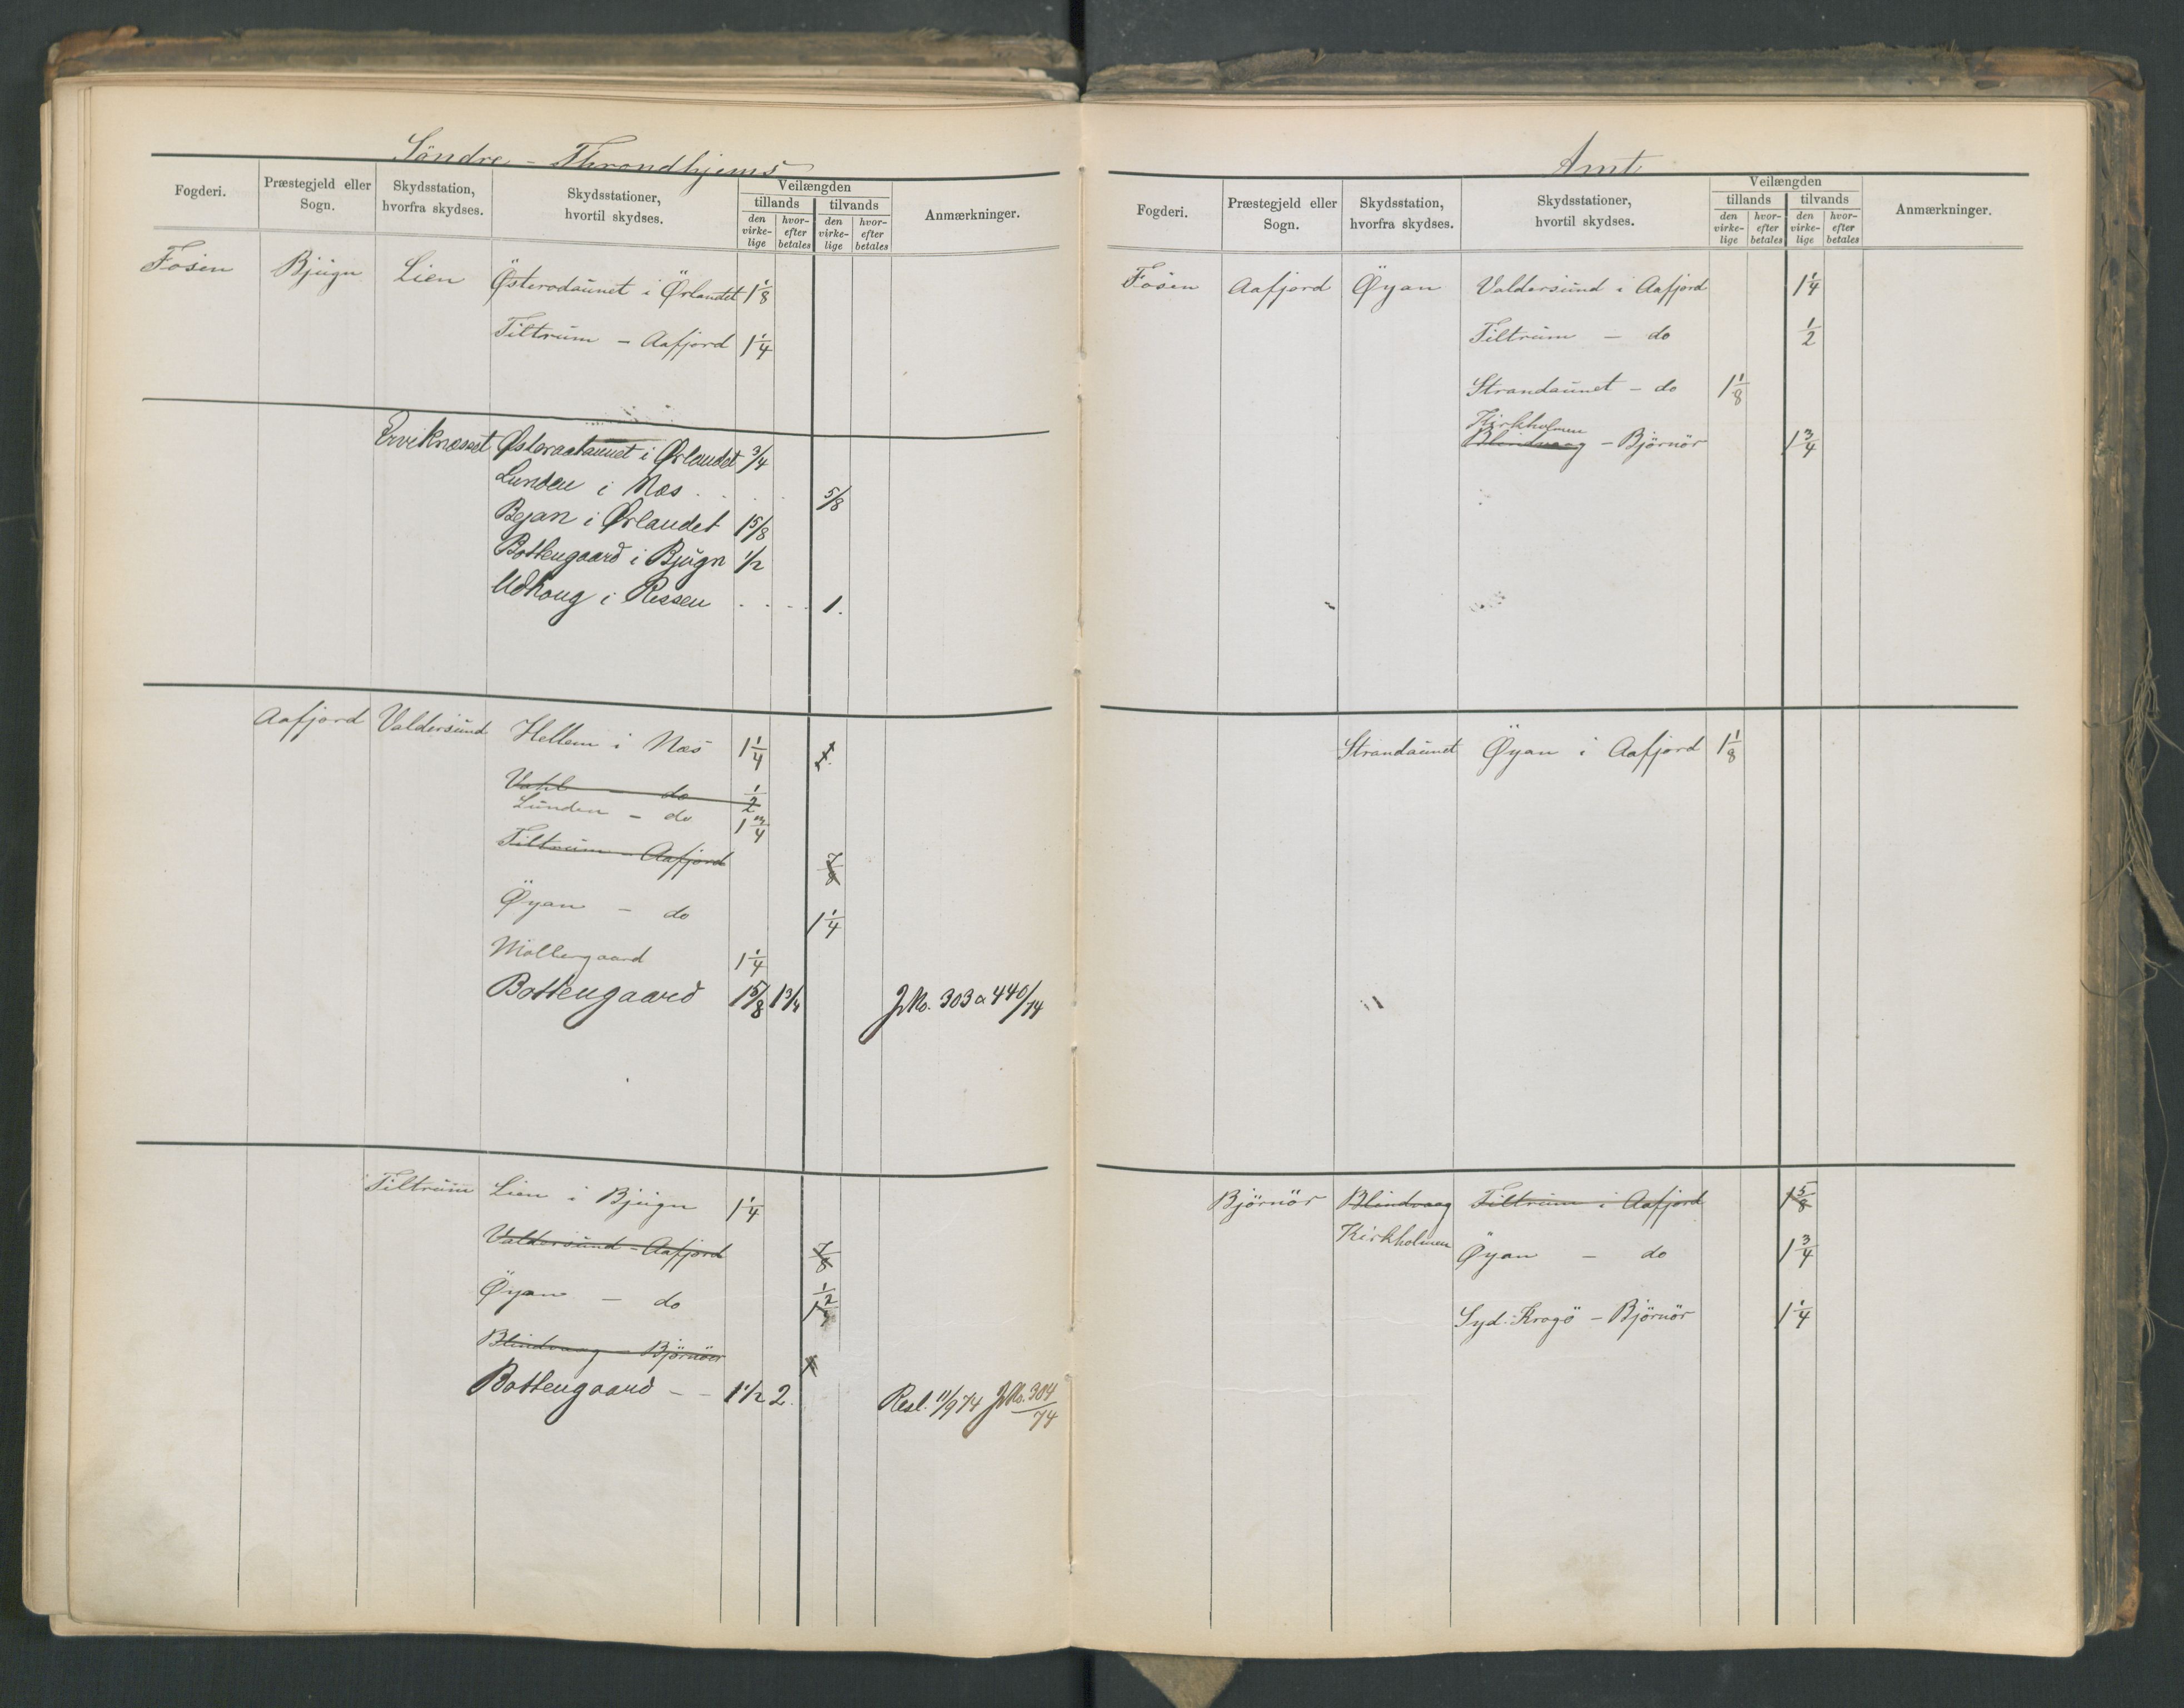 Söndre - Throndhjems
Fogderi. Præstegjeld eller Sogn. Skydsstation, hvorfra skydses. Skydsstationer, hvortil skydses. Veilængden tillands tilvands den virkelige hvorefter betales den virkelige hvorefter betales Anmærkninger.
Fosen Bjugn Lien Østeradaunet i Ørlandet 1 1/8
Tiltrum - Aafjord 1 1/4
Erviknæsset Østeraataunet i Ørlandet 3/4
Lunden i Næs . . . 5/8
Bejan i Ørlandet 1 5/8
Bottengaard i Bjugn 1/2
Udhaug i Rissen . . . . 1.
Aafjord Valdersund Hellem i Næs 1 1/4 1.
Vahl - do 1/2
Lunden - do 1 3/4
Tiltrum - Aafjord 7/8
Øyan - do 1 1/4
Møllergaard 1 1/4
Bottengaard 1 5/8 1 3/4 JNo. 303 a 440/74
Tiltrum Lien i Bjugn 1 1/4
Valdersund - Aafjord 7/8
Øyan - do 1/2
Blindvaag - Björnöer
Bottengaard - - 1 1/2 2. Resl. 11/9 74 JNo. 384/74
Amt
Fogderi. Præstegjeld eller Sogn. Skydsstation, hvorfra skydses. Skydsstationer, hvortil skydses. Veilængden tillands tilvands den virkelige hvorefter betales den virkelige hvorefter betales Anmærkninger.
Fosen Aafjord Øyan Valdersund i Aafjord 1 1/4
Tiltrum - do 1/2
Strandaunet - do 1 1/8
Kirkholmen
Blindvaag - Björnör 1 3/4
Strandaunet Øyan i Aafjord 1 1/8
Björnör Blindvaag Tiltrum i Aafjord 1 5/8
Kirkholmen Øyan - do 1 3/4
Syd: Krogö - Björnör 1 1/4